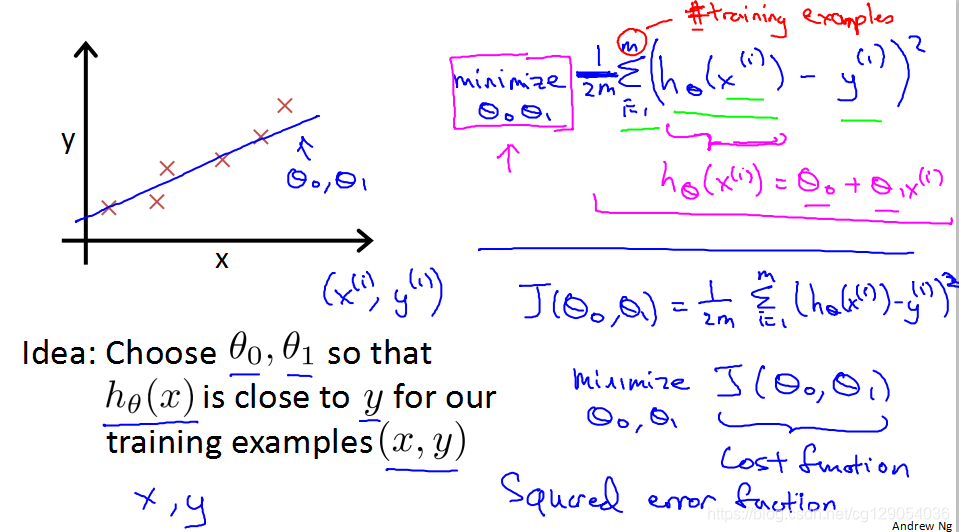 #training examples
minimize
θ₀ θ₁
1/2m Σ_{i=1}^{m} (h_θ(x^(i)) - y^(i))²
h_θ(x^(i)) = θ₀ + θ₁x^(i)
y
θ₀, θ₁
x
(x^(i), y^(i))
J(θ₀, θ₁) = 1/2m Σ_{i=1}^{m} (h_θ(x^(i)) - y^(i))²
Idea: Choose θ₀, θ₁ so that
h_θ(x) is close to y for our
training examples (x, y)
x, y
minimize J(θ₀, θ₁)
θ₀, θ₁
Cost function
Squared error function
https://blog.csdn.net/cg129054036
Andrew Ng